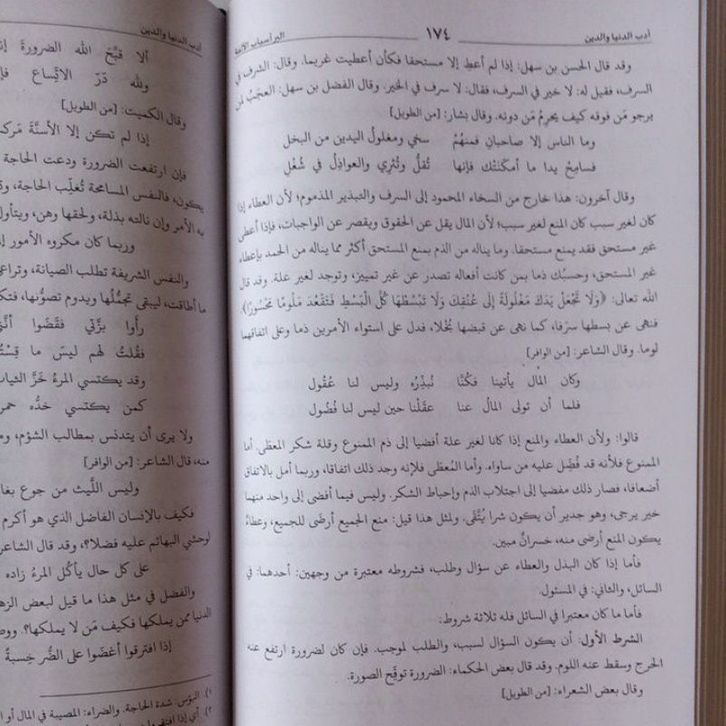 أدب الدنيا والدين ١٧٤ البر أسباب الألفة
وقد قال الحسن بن سهل: إذا لم أعطِ إلا مستحقا فكأن أعطيت غريما. وقال: الشرف في
السرف، فقيل له: لا خير في السرف، فقال: لا سرف في الخير. وقال الفضل بن سهل: العجبُ لمن
يرجو مَن فوقه كيف يحرِمُ مَن دونه. وقال بشار: [من الطويل]
وما الناس إلا صاحبان فمنهمُ سخي ومغلولُ اليدين من البخل
فسامِحْ يدا ما أمكنَتْك فإنها تُقلُّ وتُثْرِي والعواذِلُ في شُغْلِ
وقال آخرون: هذا خارج من السخاء المحمود إلى السرف والتبذير المذموم؛ لأن العطاء إذا
كان لغير سبب كان المنع لغير سبب؛ لأن المال يقل عن الحقوق ويقصر عن الواجبات، فإذا أعطى
غير مستحق فقد يمنع مستحقا. وما يناله من الذم بمنع المستحق أكثر مما يناله من الحمد بإعطاء
غير المستحق، وحسبُك ذما بمن كانت أفعاله تصدر عن غير تمييز، وتوجد لغير علة. وقد قال
الله تعالى: ﴿وَلَا تَجْعَلْ يَدَكَ مَغْلُولَةً إِلَى عُنُقِكَ وَلَا تَبْسُطْهَا كُلَّ الْبَسْطِ فَتَقْعُدَ مَلُومًا مَحْسُورًا﴾.
فنهى عن بسطها سرَفا، كما نهى عن قبضها بُخلا، فدل على استواء الأمرين ذما وعلى اتفاقهما
لوما. وقال الشاعر: [من الوافر]
وكان المال يأتينا فكُنَّا نُبذِّرُه وليس لنا عُقُول
فلما أن تولى المالُ عنا عقَلْنا حين ليس لنا فُضُول
قالوا: ولأن العطاء والمنع إذا كانا لغير علة أفضيا إلى ذم الممنوع وقلة شكر المعطى. أما
الممنوع فلأنه قد فُضِّل عليه من ساواه. وأما المُعطى فلإنه وجد ذلك اتفاقا، وربما أمل بالاتفاق
أضعافا، فصار ذلك مفضيا إلى اجتلاب الذم وإحباط الشكر. وليس فيما أفضى إلى واحد منهما
خير يرجى، وهو جدير أن يكون شرا يُتَّقى. ولمثل هذا قيل: منع الجميع أرضى للجميع، وعطاءٌ
يكون المنع أرضى منه، خسرانٌ مبين.
فأما إذا كان البذل والعطاء عن سؤال وطلب، فشروطه معتبرة من وجهين: أحدهما: في
السائل، والثاني: في المسئول.
فأما ما كان معتبرا في السائل فله ثلاثة شروط:
الشرط الأول: أن يكون السؤال لسبب، والطلب لموجب. فإن كان لضرورة ارتفع عنه
الحرج وسقط عنه اللوم. وقد قال بعض الحكماء: الضرورة توقِّح الصورة.
وقال بعض الشعراء: [من الطويل]
أدب الدنيا والدين
ألا قبَّحَ الله الضرورة
ولله درّ الاتِّساع
وقال الكميت: [من الطويل]
إذا لم تكن إلا الأسنَّةَ
فإن ارتفعت الضرورة ودعت الحاجة
يكون، فالنفس المسامحة تُغلِّب الحاجة،
به الأمر وإن نالته بذلة، ولحقها وهن، ويتأول
وربما كان مكروه الأمور
والنفس الشريفة تطلب الصيانة، وتراعي
ما أطاقت، ليبقى تجمُّلُها ويدوم تصوُّنها،
رأوا بزَّتي فقَضَوا
فقلتُ لهم ليسَ ما
وقد يكتسي المرءُ خَزَّ الثياب
كمن يكتسي خدُّه
ولا يرى أن يتدنس بمطالب الشؤم،
منه، قال الشاعر: [من الوافر]
وليس اللَّيث من جوع
فكيف بالإنسان الفاضل الذي هو أكرم
لوحشي البهائم عليه فضلا؟، وقد قال الشاعر
على كل حال يأكُل المرءُ زاده
والفضل في مثل هذا ما قيل لبعض
الدنيا ممن يملكها فكيف مَن لا يملكها؟
إذا افترقوا أغضَوا على الضُّر خِسبةً
١) البؤس: شدة الحاجة. والضراء: المصيبة في المال أو
٢) أي إذا